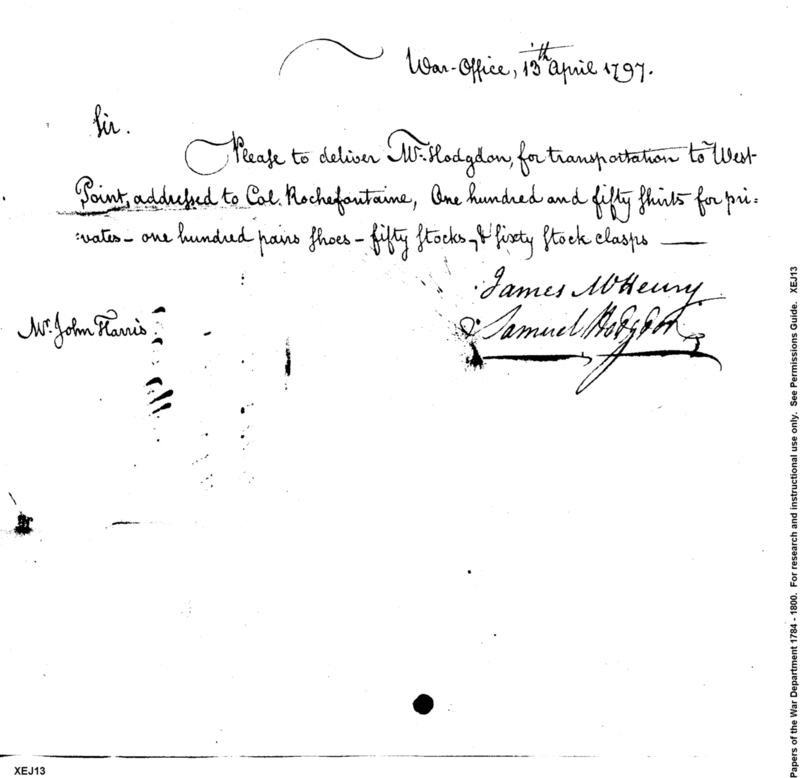 War-Office, 13th April 1797.
Sir.
Please to deliver Mr. Hodgdon, for transportation to West-
Point, addressed to Col. Rochefontaine, One hundred and fifty shirts for pri=
=vates - one hundred pairs shoes - fifty stocks, & sixty stock clasps
James McHenry
& Samuel Hodgdon
Mr. John Harris
Papers of the War Department 1784 - 1800. For research and instructional use only. See Permissions Guide. XEJ13
XEJ13